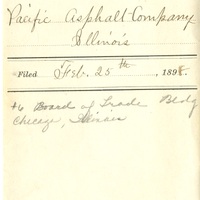 Pacific Asphalt Company
Illinois
Filed Feb. 25th, 1898.
#6 Board of Trade Bldg
Chicago, Illinois